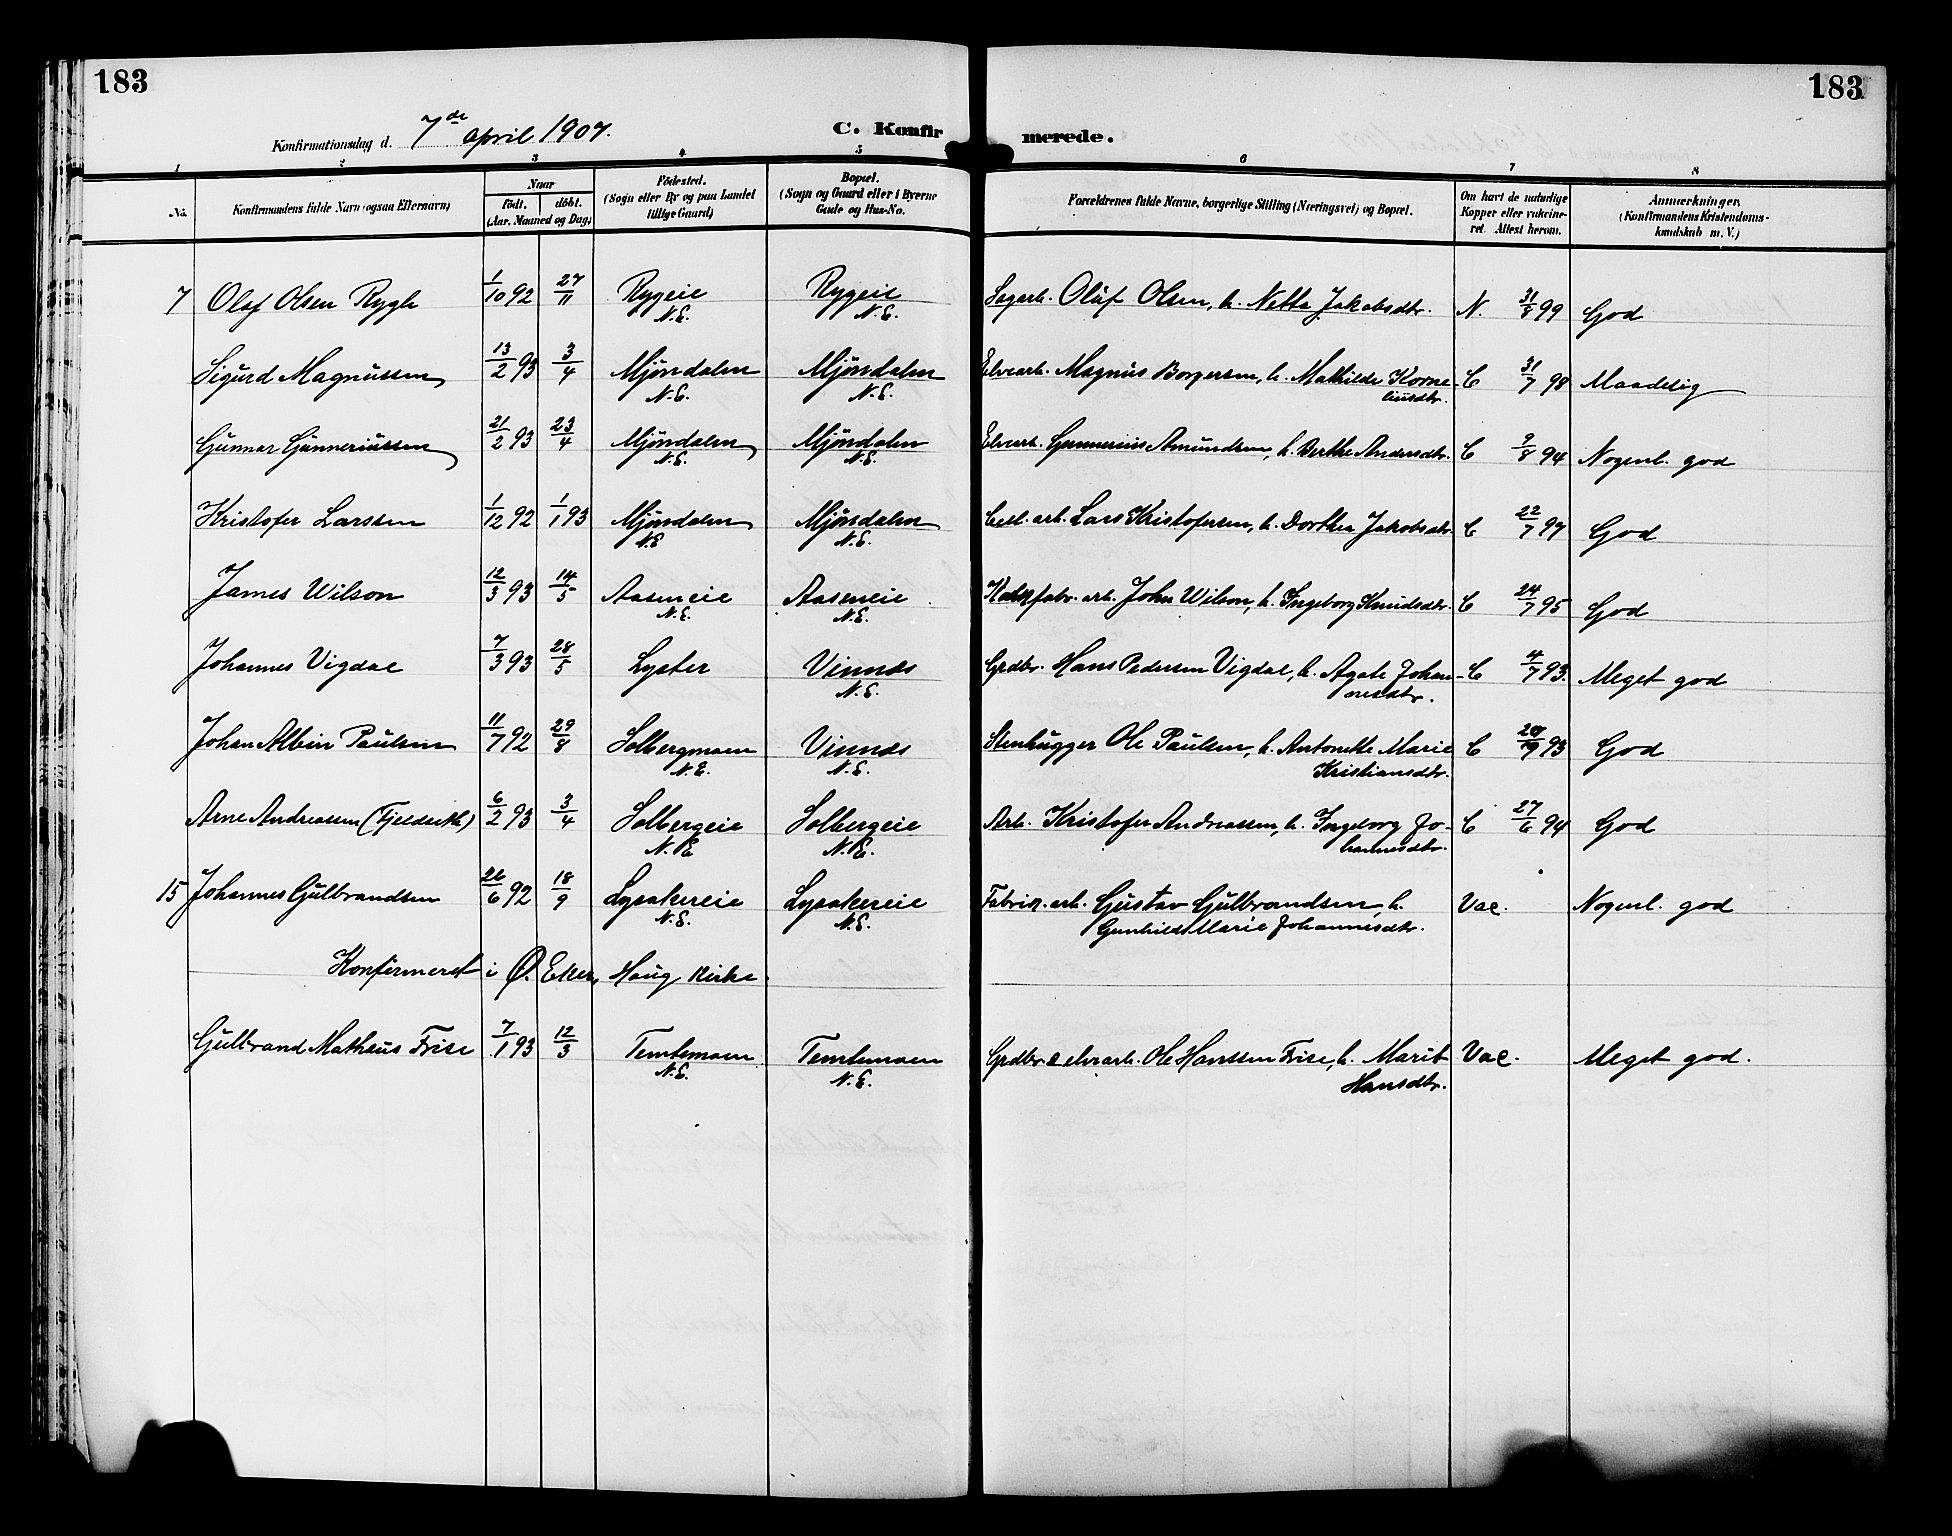 183
183
Konfirmationsdag d. 7de april 1907.
C. Konfir
merede.
1 2 3 4 5 6 7 8
No.
Konfirmandens fulde Navn (ogsaa Efternavn)
Naar
födt. döbt.
(Aar, Maaned og Dag)
Födested.
(Sogn eller By og paa Landet
tillige Gaard)
Bopæl.
(Sogn og Gaard eller i Byerne
Gade og Hus-No.
Forældrenes fulde Navne, borgerlige Stilling (Næringsvei) og Bopæl.
Om havt de naturlige
Kopper eller vakcine-
ret. Attest herom.
Anmærkninger,
(Konfirmandens Kristendoms-
kundskab m. V.)
7 Olaf Olsen Rygh 1/10 92 27/11 Rygeie Rygeie Sagarb. Oluf Olsen, h. Netta Jakobsdtr. N. 31/8 99 God
N.E. N.E.
Sigurd Magnussen 13/2 93 3/4 Mjøndalen Mjøndalen Elvearb. Magnus Borgersen, h. Mathilde Korne- C 31/7 98 Maadelig
N.E. N.E. liusdtr.
Gunnar Gunneriussen 21/2 93 23/4 Mjøndalen Mjøndalen Elvearb. Gunnerius Amundsen, h. Berthe Andersdtr. C 9/8 94 Nogenl. god
N.E. N.E.
Kristofer Larssen 1/12 92 1/1 93 Mjøndalen Mjøndalen Cell. arb. Lars Kristofersen, h. Dorthea Jakobsdtr. C 22/7 97 God
N.E N.E.
James Wilson 12/3 93 14/5 Aaseneie Aaseneie fabr. arb. John Wilson, h. Ingeborg Knudsdtr. C 24/7 95 God
N.E. N.E.
Johannes Vigdal 7/3 93 28/5 Lyster Vinnæs Grdbr. Hans Pedersen Vigdal, h. Agate Johan- C 4/7 93. Meget god
N.E. nesdtr.
Johan Albin Paulsen 11/7 92 29/8 Solbergmoen Vinnæs Stenhugger Ole Paulsen, h. Antonette Marie C 93 God
N.E. N.E. Kristiansdtr.
Arne Andreassen (Fjeldseth) 6/2 93 3/4 Solbergeie Solbergeie Arb. Kristofer Andreassen, h. Ingeborg Jo- C 27/6 94 God
N.E N.E. hannesdtr.
15 Johannes Gulbrandsen 26/6 92 18/9 Lysakereie Lysakereie Fabrik. arb. Gustav Gulbrandsen, h. Vac. Nogenl. god
N.E. N.E. Gunhild Marie Johannesdtr.
Konfirmeret i Ø. Eker, Haug Kirke.
Gulbrand Mathæus Frise 7/1 93 12/3 Temtemoen Temtemoen Grdbr. & elvearb. Ole Hanssen Frise, h. Marit Vac. Meget god.
N.E. N.E. Hansdtr.